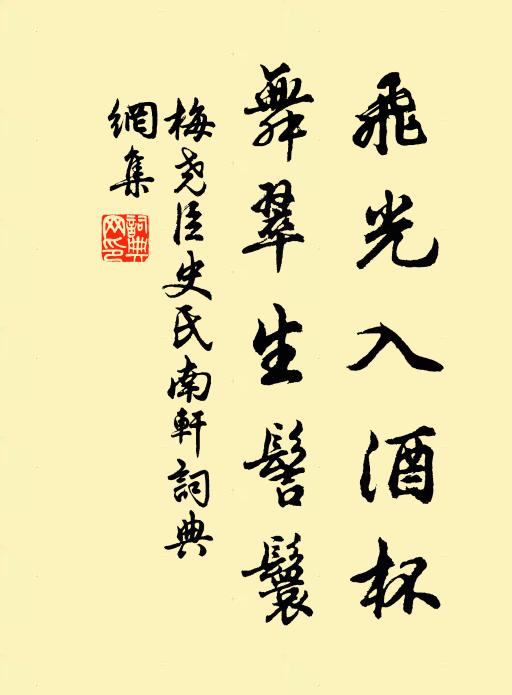 飛光入酒杯
舞翠生髻鬟
梅尧臣史氏南軒詞典
網集
詞典
网印